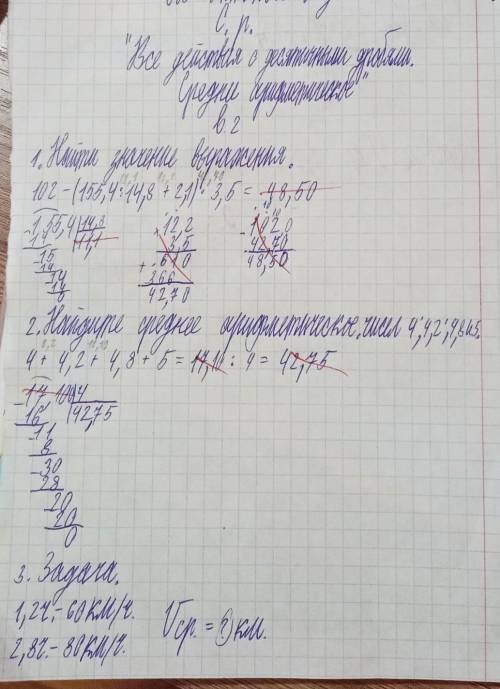 с. р.
"Все действия с десятичными дробями.
Среднее арифметическое"
в. 2
1. Найти значение выражения.
102 - (155,4 : 14,8 + 2,1) · 3,5 = 48,50
-155,4 | 14,8
11,1
-15
14
14
× 12,2
3,5
+ 610
366
42,70
- 1020
42,70
48,50
2. Найдите среднее арифметическое чисел 4; 4,2; 4,8 и 5.
4 + 4,2 + 4,8 + 5 = 17,10 : 4 = 42,75
- 17,10 | 4
16 | 42,75
-11
8
-30
28
20
20
0
3. Задача.
1,2ч. - 60км/ч.
2,8ч. - 80км/ч.
Vср. = ? км.